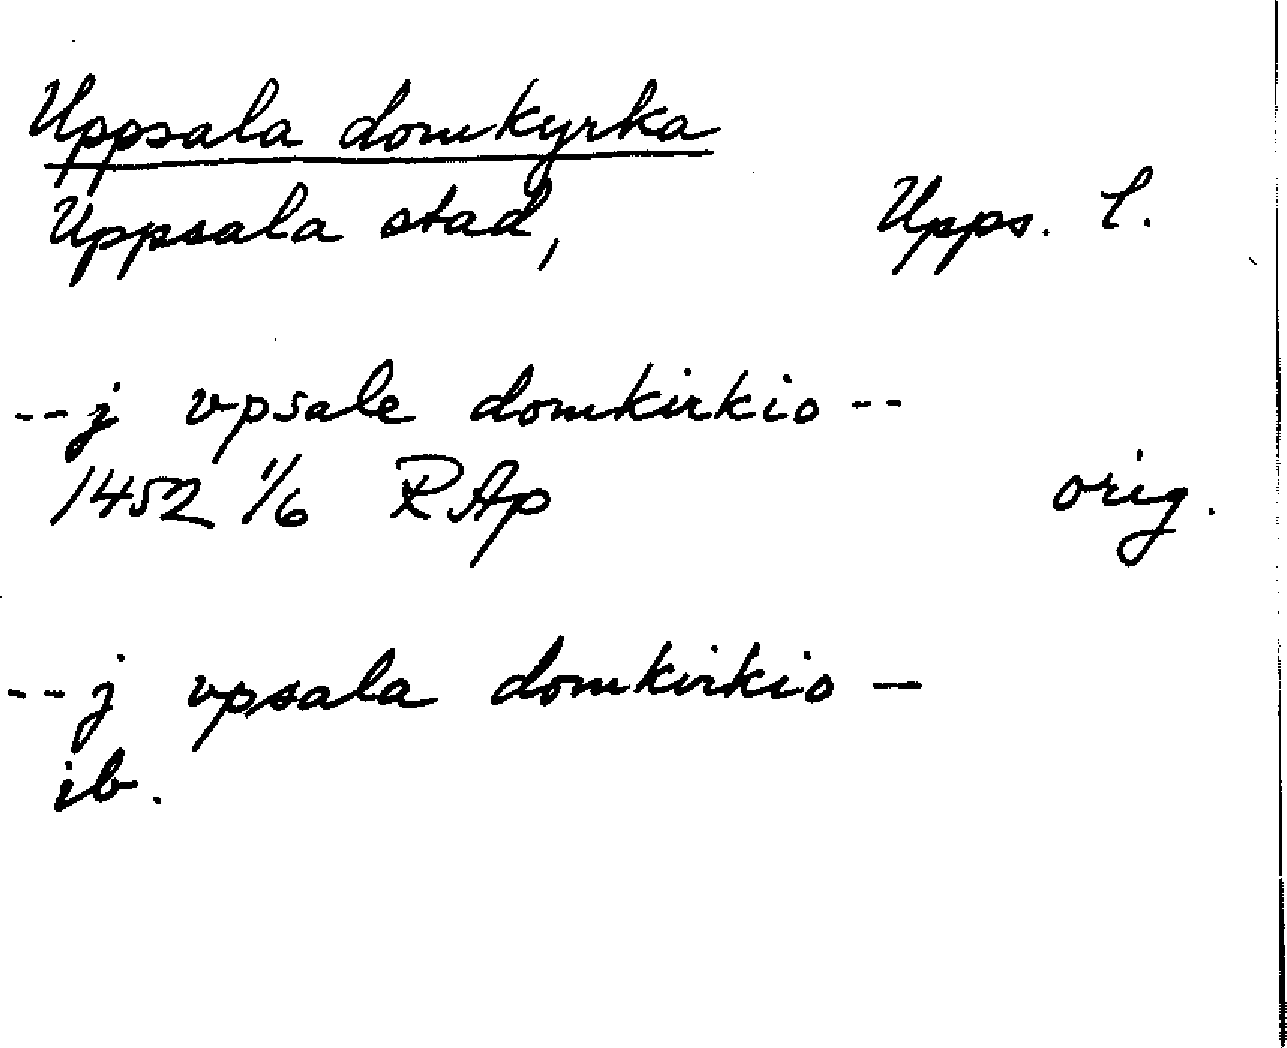 Uppsala domkyrka
Uppsala stad, Upps. l.
--j vpsale domkirkio--
1452 1/6 RAp orig.
--j vpsala domkirkio—
ib.